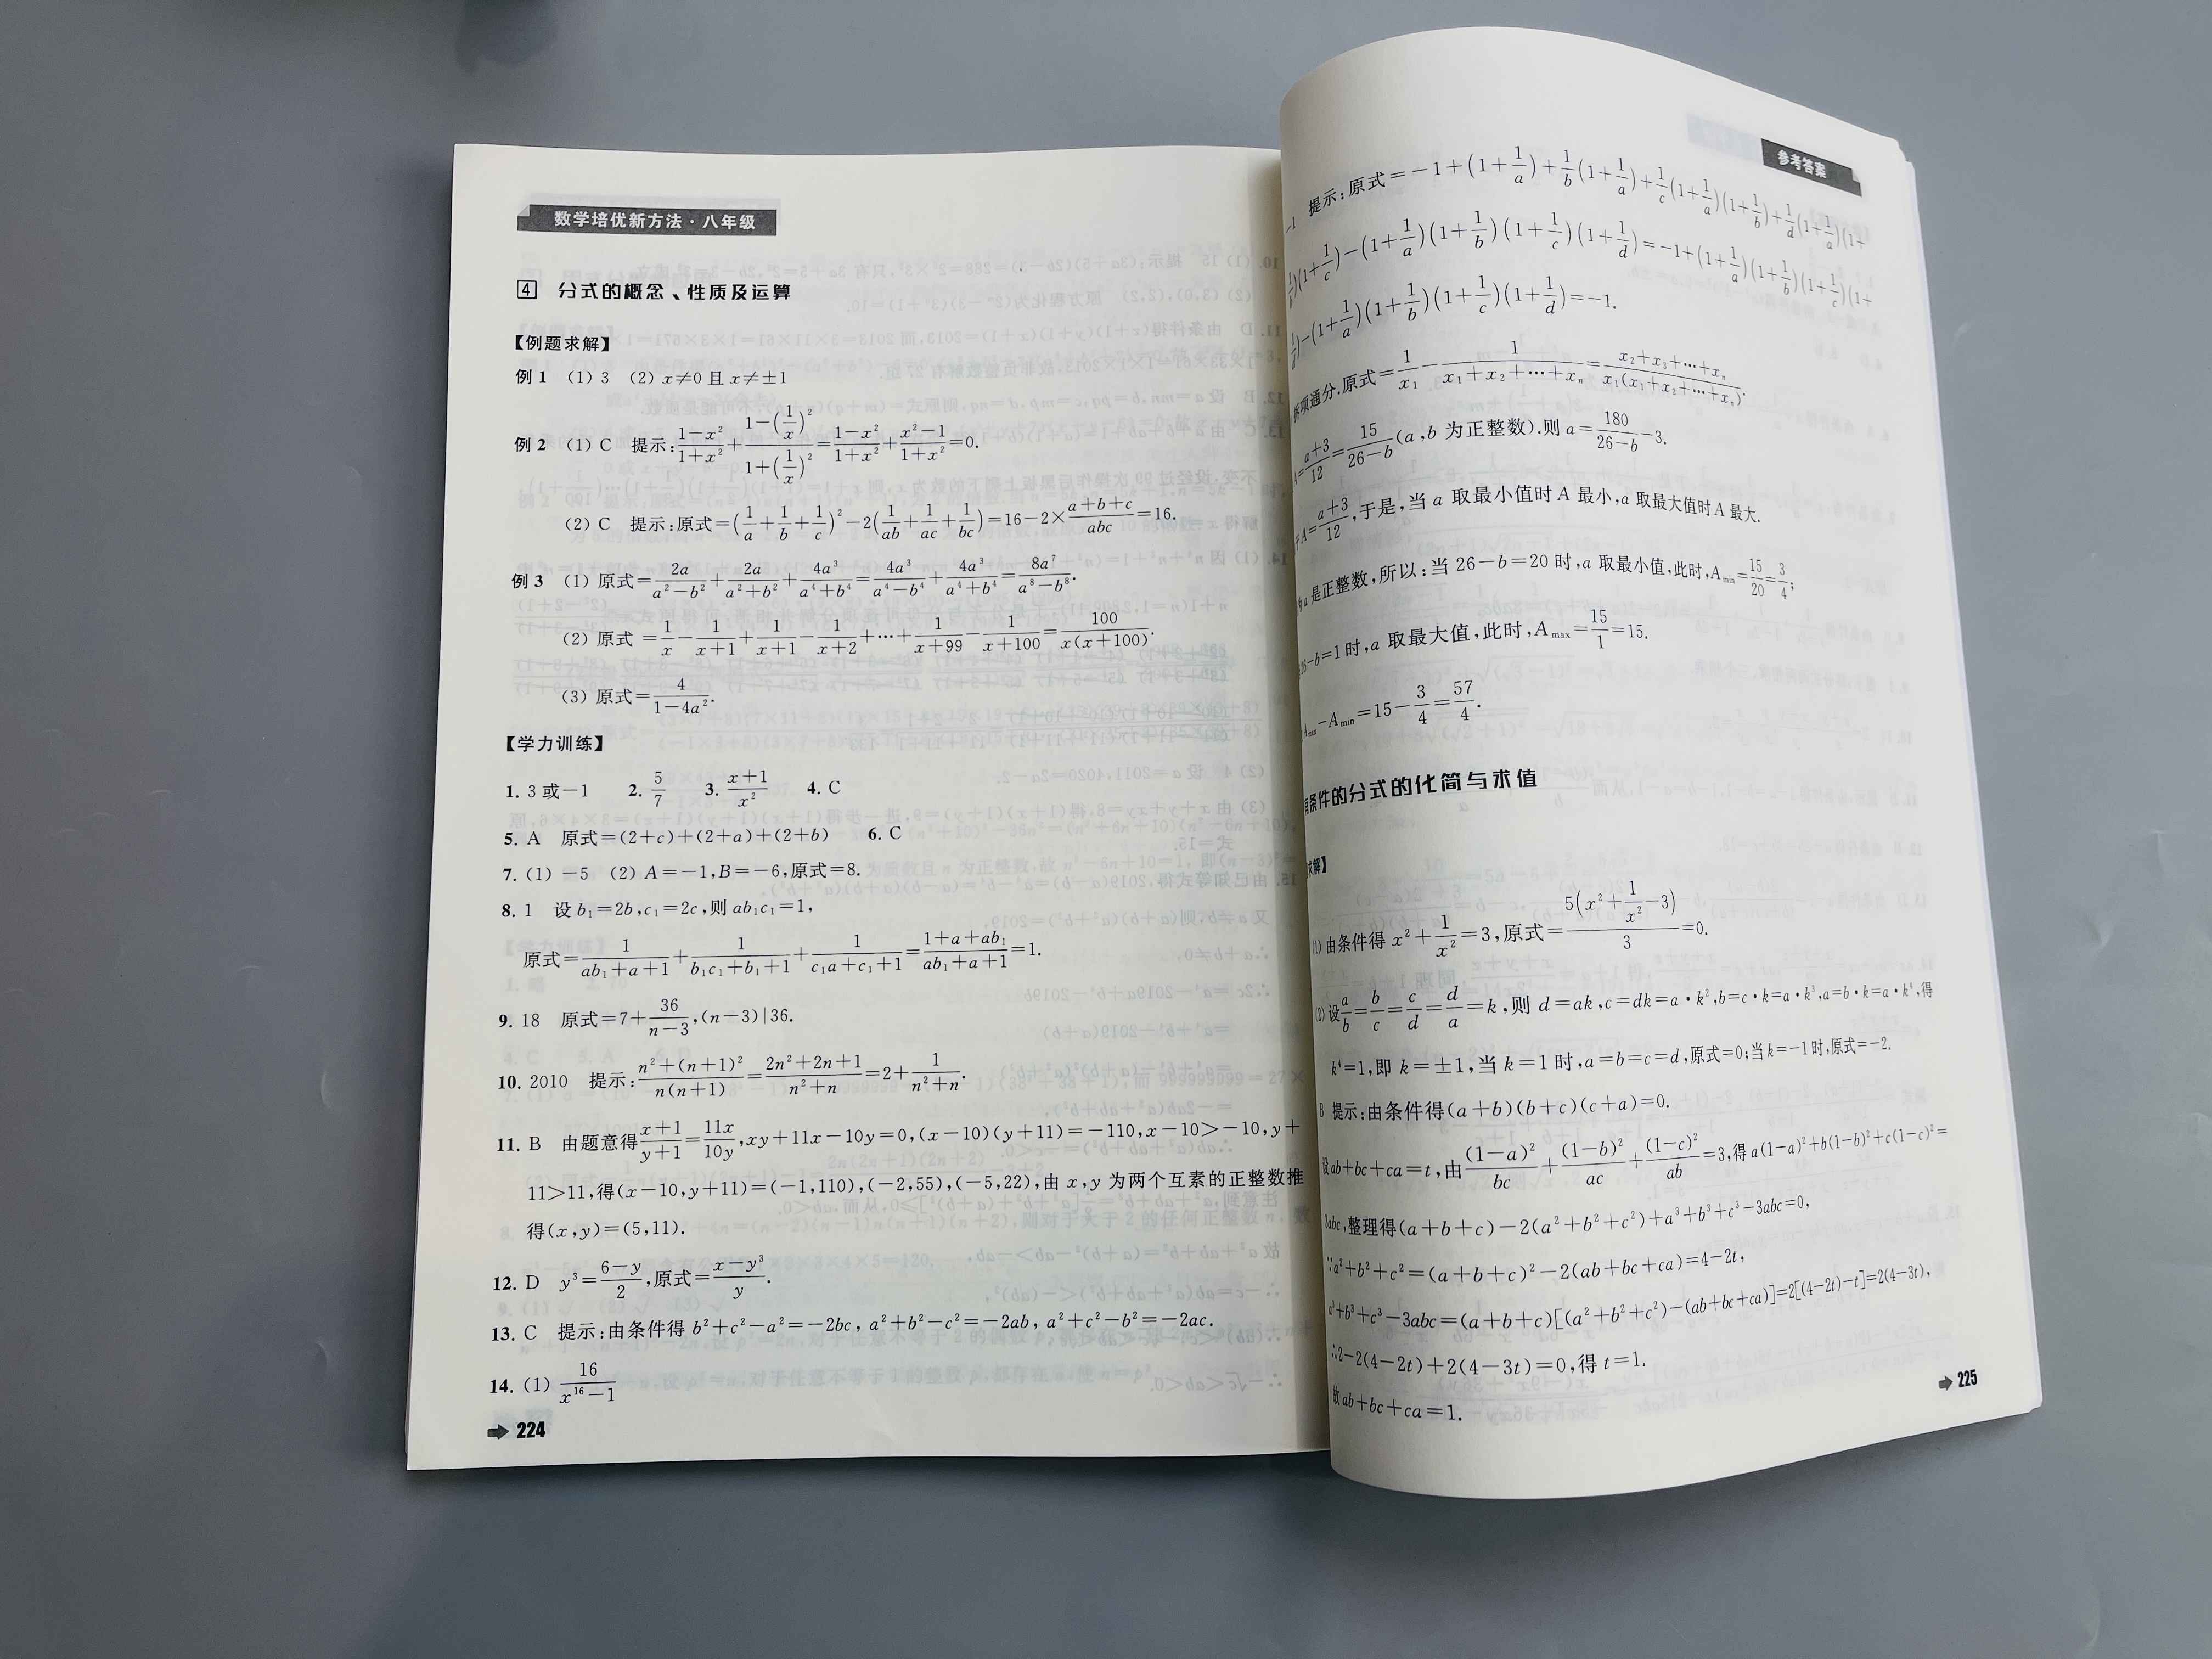 数学培优新方法·八年级
4 分式的概念、性质及运算
【例题求解】
例1 (1) 3 (2) x≠0且x≠±1
例2 (1) C 提示:\frac{1-x²}{1+x²}+\frac{1-(\frac{1}{x})²}{1+(\frac{1}{x})²}=\frac{1-x²}{1+x²}+\frac{x²-1}{1+x²}=0.
(2) C 提示:原式=(\frac{1}{a}+\frac{1}{b}+\frac{1}{c})²-2(\frac{1}{ab}+\frac{1}{ac}+\frac{1}{bc})=16-2×\frac{a+b+c}{abc}=16.
例3 (1) 原式=\frac{2a}{a²-b²}+\frac{2a}{a²+b²}+\frac{4a³}{a⁴+b⁴}=\frac{4a³}{a⁴-b⁴}+\frac{4a³}{a⁴+b⁴}=\frac{8a⁷}{a⁸-b⁸}.
(2) 原式=\frac{1}{x}-\frac{1}{x+1}+\frac{1}{x+1}-\frac{1}{x+2}+⋯+\frac{1}{x+99}-\frac{1}{x+100}=\frac{100}{x(x+100)}.
(3) 原式=\frac{4}{1-4a²}.
【学力训练】
1. 3或-1 2. \frac{5}{7} 3. \frac{x+1}{x²} 4. C
5. A 原式=(2+c)+(2+a)+(2+b) 6. C
7. (1) -5 (2) A=-1,B=-6,原式=8.
8. 1 设b₁=2b,c₁=2c,则ab₁c₁=1,
原式=\frac{1}{ab₁+a+1}+\frac{1}{b₁c₁+b₁+1}+\frac{1}{c₁a+c₁+1}=\frac{1+a+ab₁}{ab₁+a+1}=1.
9. 18 原式=7+\frac{36}{n-3},(n-3)|36.
10. 2010 提示:\frac{n²+(n+1)²}{n(n+1)}=\frac{2n²+2n+1}{n²+n}=2+\frac{1}{n²+n}.
11. B 由题意得\frac{x+1}{y+1}=\frac{11x}{10y},xy+11x-10y=0,(x-10)(y+11)=-110,x-10>-10,y+
11>11,得(x-10,y+11)=(-1,110),(-2,55),(-5,22),由x,y为两个互素的正整数推
得(x,y)=(5,11).
12. D y³=\frac{6-y}{2},原式=\frac{x-y³}{y}.
13. C 提示:由条件得b²+c²-a²=-2bc, a²+b²-c²=-2ab, a²+c²-b²=-2ac.
14. (1) \frac{16}{x¹⁶-1}
224
参考答案
-1 提示:原式=-1+(1+\frac{1}{a})+\frac{1}{b}(1+\frac{1}{a})+\frac{1}{c}(1+\frac{1}{a})(1+\frac{1}{b})+\frac{1}{d}(1+\frac{1}{a})(1+
\frac{1}{b})(1+\frac{1}{c})-(1+\frac{1}{a})(1+\frac{1}{b})(1+\frac{1}{c})(1+\frac{1}{d})=-1+(1+\frac{1}{a})(1+\frac{1}{b})(1+\frac{1}{c})(1+
\frac{1}{d})-(1+\frac{1}{a})(1+\frac{1}{b})(1+\frac{1}{c})(1+\frac{1}{d})=-1.
拆项通分.原式=\frac{1}{x₁}-\frac{1}{x₁+x₂+⋯+xₙ}=\frac{x₂+x₃+⋯+xₙ}{x₁(x₁+x₂+⋯+xₙ)}.
A=\frac{a+3}{12}=\frac{15}{26-b}(a,b为正整数).则a=\frac{180}{26-b}-3.
A=\frac{a+3}{12},于是,当a取最小值时A最小,a取最大值时A最大.
a是正整数,所以:当26-b=20时,a取最小值,此时,A_{min}=\frac{15}{20}=\frac{3}{4};
26-b=1时,a取最大值,此时,A_{max}=\frac{15}{1}=15.
A_{max}-A_{min}=15-\frac{3}{4}=\frac{57}{4}.
条件的分式的化简与求值
求解】
(1) 由条件得x²+\frac{1}{x²}=3,原式=\frac{5(x²+\frac{1}{x²}-3)}{3}=0.
(2) 设\frac{a}{b}=\frac{b}{c}=\frac{c}{d}=\frac{d}{a}=k,则d=ak,c=dk=a·k²,b=c·k=a·k³,a=b·k=a·k⁴,得
k⁴=1,即k=±1,当k=1时,a=b=c=d,原式=0;当k=-1时,原式=-2.
B 提示:由条件得(a+b)(b+c)(c+a)=0.
设ab+bc+ca=t,由\frac{(1-a)²}{bc}+\frac{(1-b)²}{ac}+\frac{(1-c)²}{ab}=3,得a(1-a)²+b(1-b)²+c(1-c)²=
3abc,整理得(a+b+c)-2(a²+b²+c²)+a³+b³+c³-3abc=0,
∵a²+b²+c²=(a+b+c)²-2(ab+bc+ca)=4-2t,
a³+b³+c³-3abc=(a+b+c)[(a²+b²+c²)-(ab+bc+ca)]=2[(4-2t)-t]=2(4-3t),
∴2-2(4-2t)+2(4-3t)=0,得t=1.
故ab+bc+ca=1.
225